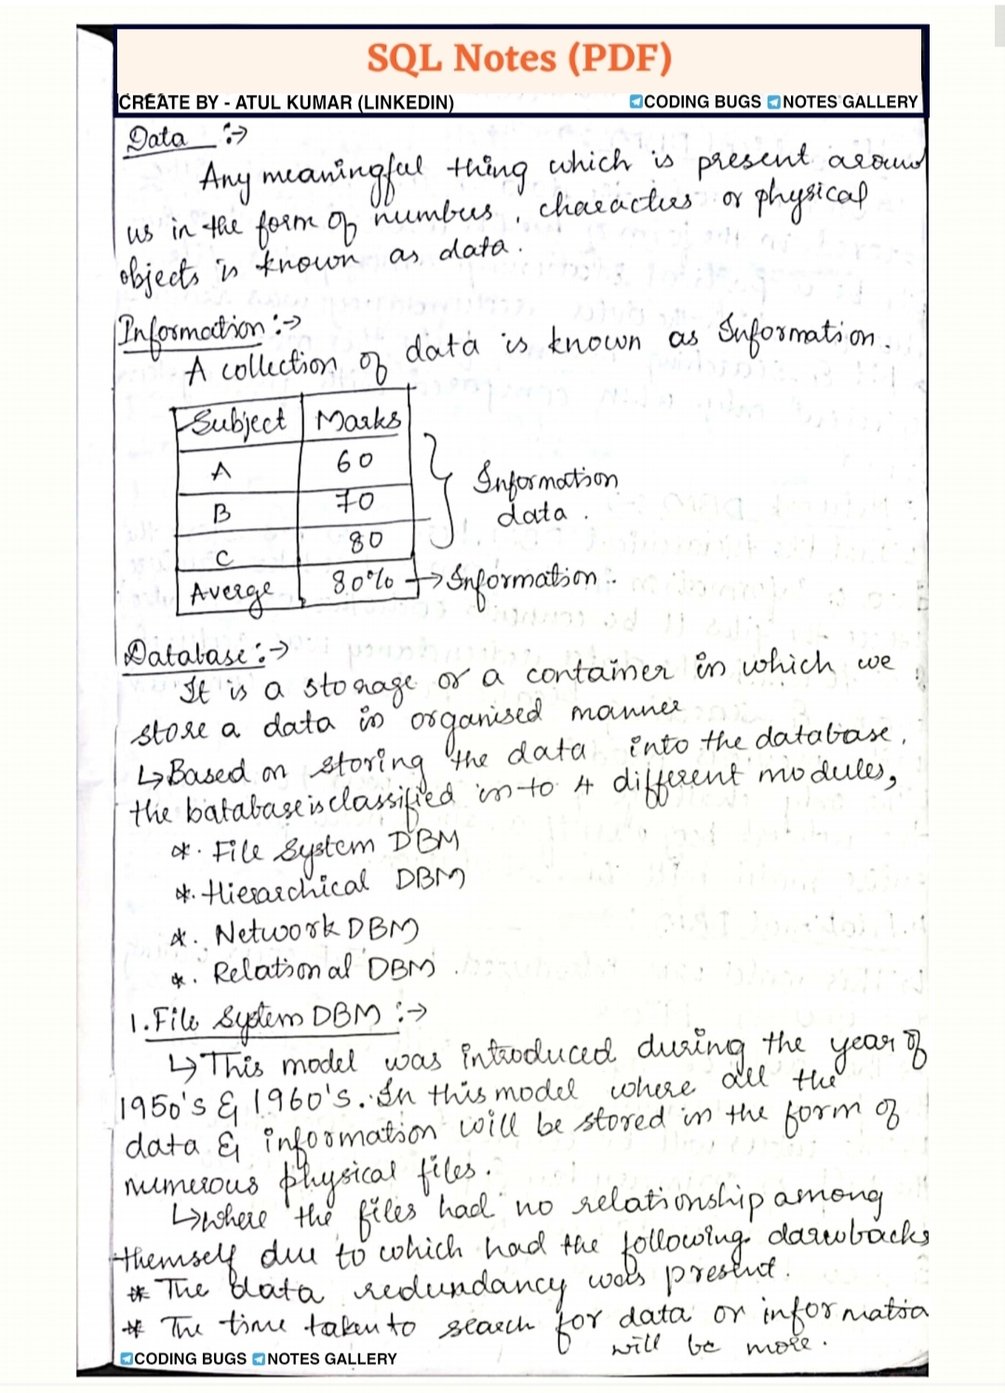 SQL Notes (PDF)
CREATE BY - ATUL KUMAR (LINKEDIN) CODING BUGS NOTES GALLERY
Data :->
Any meaningful thing which is present around
us in the form of numbers, characters or physical
objects is known as data.
Information :->
A collection of data is known as Information
Subject Marks
A 60
B 70
C 80
Averge 80% -> Information :.
Information
data.
Database :->
It is a storage or a container in which we
store a data in organised manner
↳ Based on storing the data into the database,
the batabase is classified in to 4 different modules,
*. File System DBM
*. Hierarchical DBM
*. Network DBM
*. Relational DBM.
1. File System DBM :->
↳ This model was introduced during the year of
1950's & 1960's. In this model where all the
data & information will be stored in the form of
numerous physical files.
↳ where the files had no relationship among
themself due to which had the following darwbacks
* The data redundancy was present.
* The time taken to search for data or informatio
will be more.
CODING BUGS NOTES GALLERY